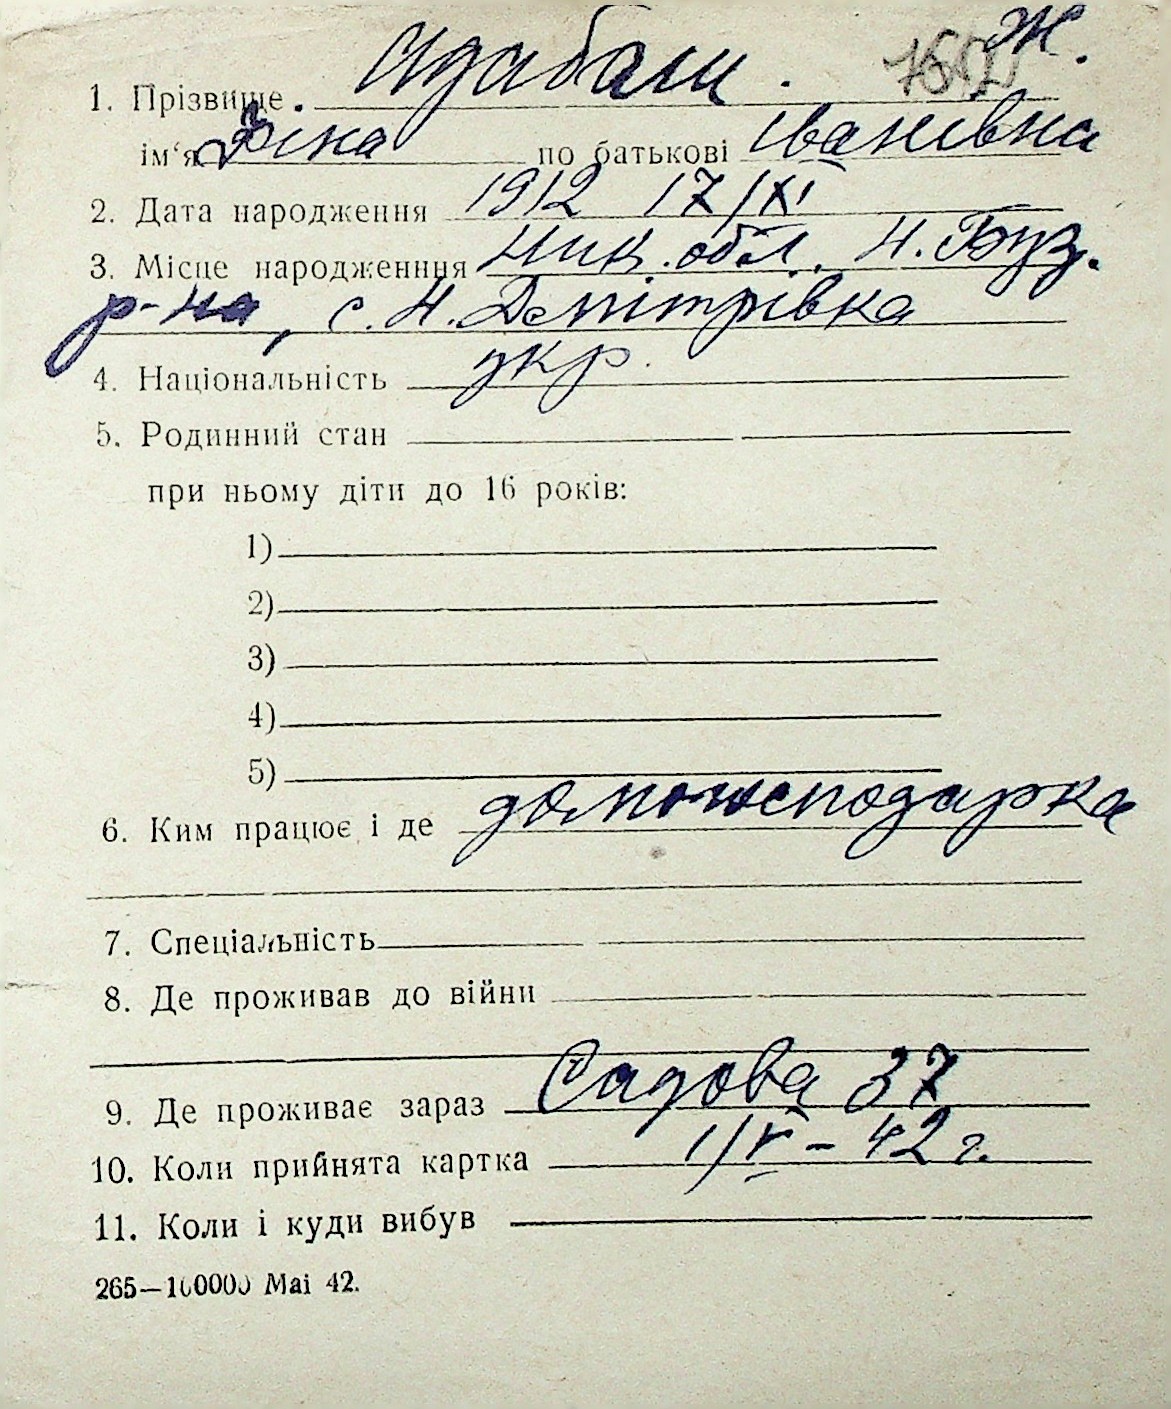 Ж.
1. Прізвище. Чдабаш.
ім‘я Зіна по батькові Іванівна
2. Дата народження 1912 17/XI
3. Місце народженння Мик. обл. Н. Буз.
р-на, с. Н. Дмітрівка
4. Національність укр.
5. Родинний стан
при ньому діти до 16 років:
1)
2)
3)
4)
5)
6. Ким працює і де домогосподарка
7. Спеціальність
8. Де проживав до війни
9. Де проживає зараз Садова 37
10. Коли прийнята картка 1/V – 42 г.
11. Коли і куди вибув
265—100000 Маі 42.